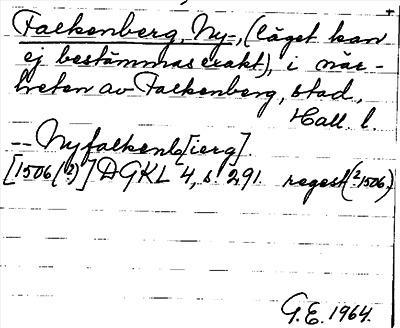 Falkenberg, Ny-, (läget kan
ej bestämmas exakt), i när-
heten av Falkenberg, stad,
Hall. l.
-- Nyfalkenb[ierg]
[1506(?)] DGKL 4, s 291. regest (?1506.)
G.E. 1964.